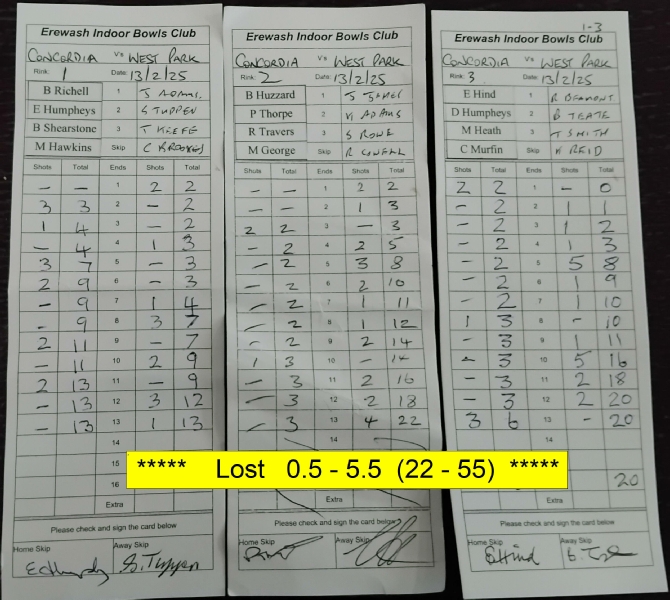 Erewash Indoor Bowls Club
CONCORDIA V's WEST PARK
Rink: 1 Date: 13/2/25
B Richell 1 J ADAMS
E Humpheys 2 S TUPPEN
B Shearstone 3 T KEEFE
M Hawkins Skip C BROOKES
Shots Total Ends Shots Total
– – 1 2 2
3 3 2 – 2
1 4 3 – 2
– 4 4 1 3
3 7 5 – 3
2 9 6 – 3
– 9 7 1 4
– 9 8 3 7
2 11 9 – 7
– 11 10 2 9
2 13 11 – 9
– 13 12 3 12
– 13 13 1 13
14
15
16
Extra
Please check and sign the card below
Home Skip Away Skip
S. Tuppen
Erewash Indoor Bowls Club
CONCORDIA V's WEST PARK
Rink: 2 Date: 13/2/25
B Huzzard 1 J JAMES
P Thorpe 2 V ADAMS
R Travers 3 S ROWE
M George Skip R COWELL
Shots Total Ends Shots Total
– – 1 2 2
– – 2 1 3
2 2 3 – 3
– 2 4 2 5
– 2 5 3 8
– 2 6 2 10
– 2 7 1 11
– 2 8 1 12
– 2 9 2 14
1 3 10 – 14
– 3 11 2 16
– 3 12 2 18
– 3 13 4 22
14
Extra
Please check and sign the card below
Home Skip Away Skip
1-3
Erewash Indoor Bowls Club
CONCORDIA V's WEST PARK
Rink: 3 Date: 13/2/25
E Hind 1 R BEAMONT
D Humpheys 2 B TEATE
M Heath 3 T SMITH
C Murfin Skip K REID
Shots Total Ends Shots Total
2 2 1 – 0
– 2 2 1 1
– 2 3 1 2
– 2 4 1 3
– 2 5 5 8
– 2 6 1 9
– 2 7 1 10
1 3 8 – 10
– 3 9 1 11
– 3 10 5 16
– 3 11 2 18
– 3 12 2 20
3 6 13 – 20
14
20
Extra
Please check and sign the card below
Home Skip Away Skip
EHind
***** Lost 0.5 - 5.5 (22 - 55) *****